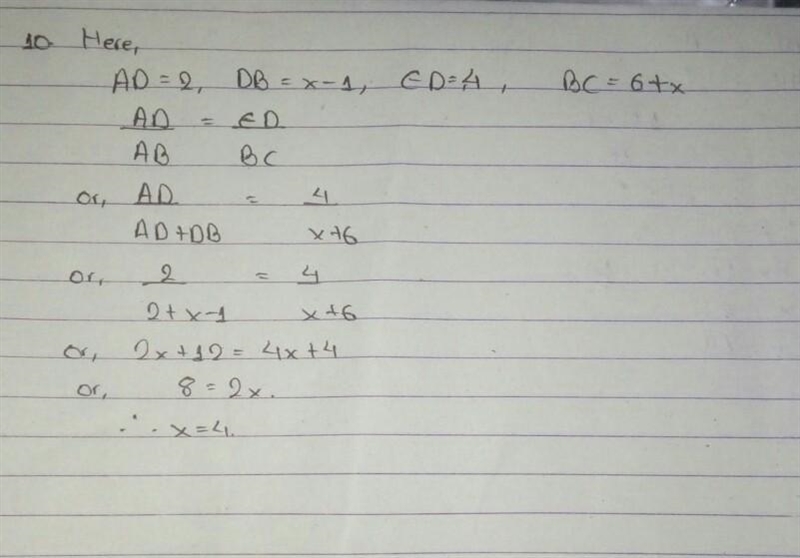 10. Here,
AD = 2, DB = x-1, ED=4, BC = 6+x
AD = ED
AB BC
or, AD = 4
AD+DB x+6
or, 2 = 4
2+x-1 x+6
or, 2x+12 = 4x+4
or, 8 = 2x.
∴ x=4.